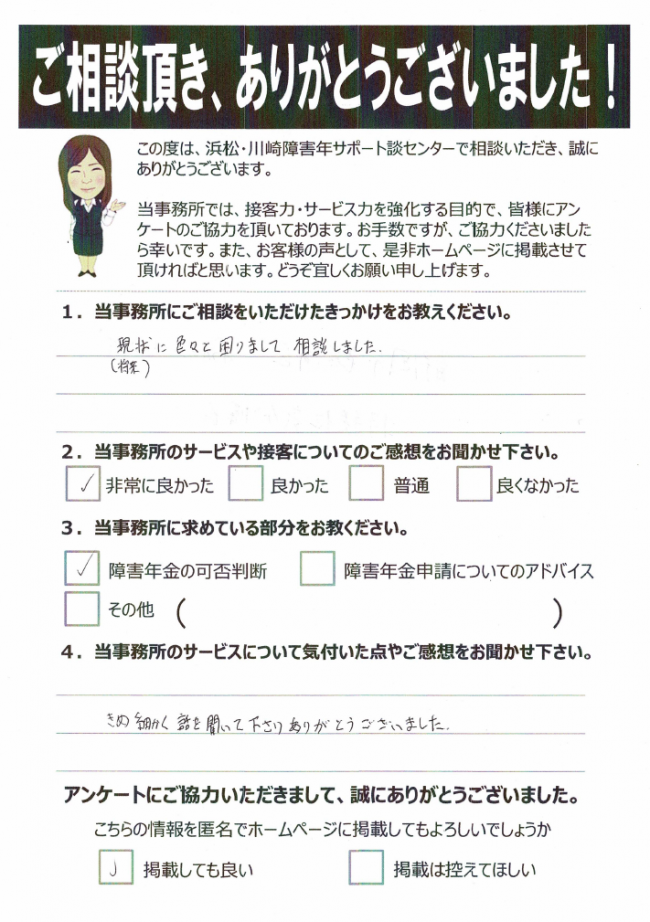 ご相談頂き、ありがとうございました！
この度は、浜松・川崎障害年サポート談センターで相談いただき、誠に
ありがとうございます。
当事務所では、接客力・サービス力を強化する目的で、皆様にアン
ケートのご協力を頂いております。お手数ですが、ご協力くださいました
ら幸いです。また、お客様の声として、是非ホームページに掲載させて
頂ければと思います。どうぞ宜しくお願い申し上げます。
1．当事務所にご相談をいただけたきっかけをお教えください。
現状に色々と困りまして 相談しました.
(将来)
2．当事務所のサービスや接客についてのご感想をお聞かせ下さい。
✓ 非常に良かった 良かった 普通 良くなかった
3．当事務所に求めている部分をお教ください。
✓ 障害年金の可否判断 障害年金申請についてのアドバイス
その他 ( )
4．当事務所のサービスについて気付いた点やご感想をお聞かせ下さい。
きめ細かく話を聞いて下さりありがとうございました.
アンケートにご協力いただきまして、誠にありがとうございました。
こちらの情報を匿名でホームページに掲載してもよろしいでしょうか
✓ 掲載しても良い 掲載は控えてほしい